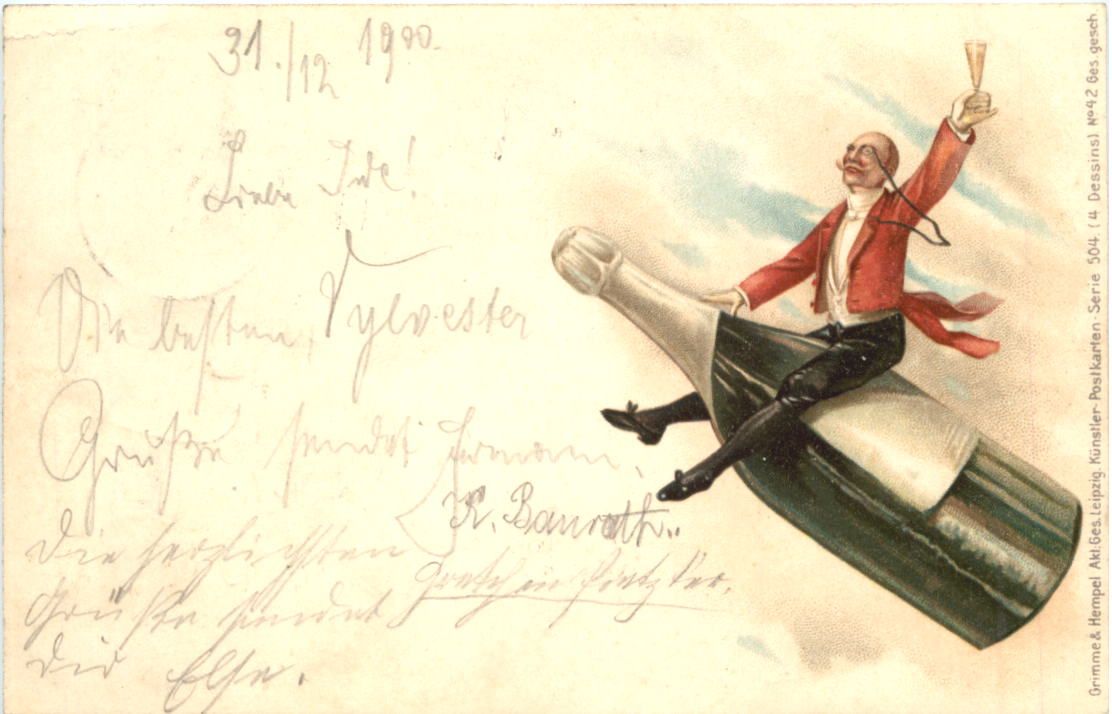 31./12 1900.
Liebe Ide!
Die besten Sylvester
Grüße sendet Hermann.
K. Banrath..
Die herzlichsten
Grüße sendet
Dir Else.
Grimme & Hempel Akt. Ges. Leipzig. Künstler-Postkarten · Serie 504. (4 Dessins) No 42 Ges. gesch